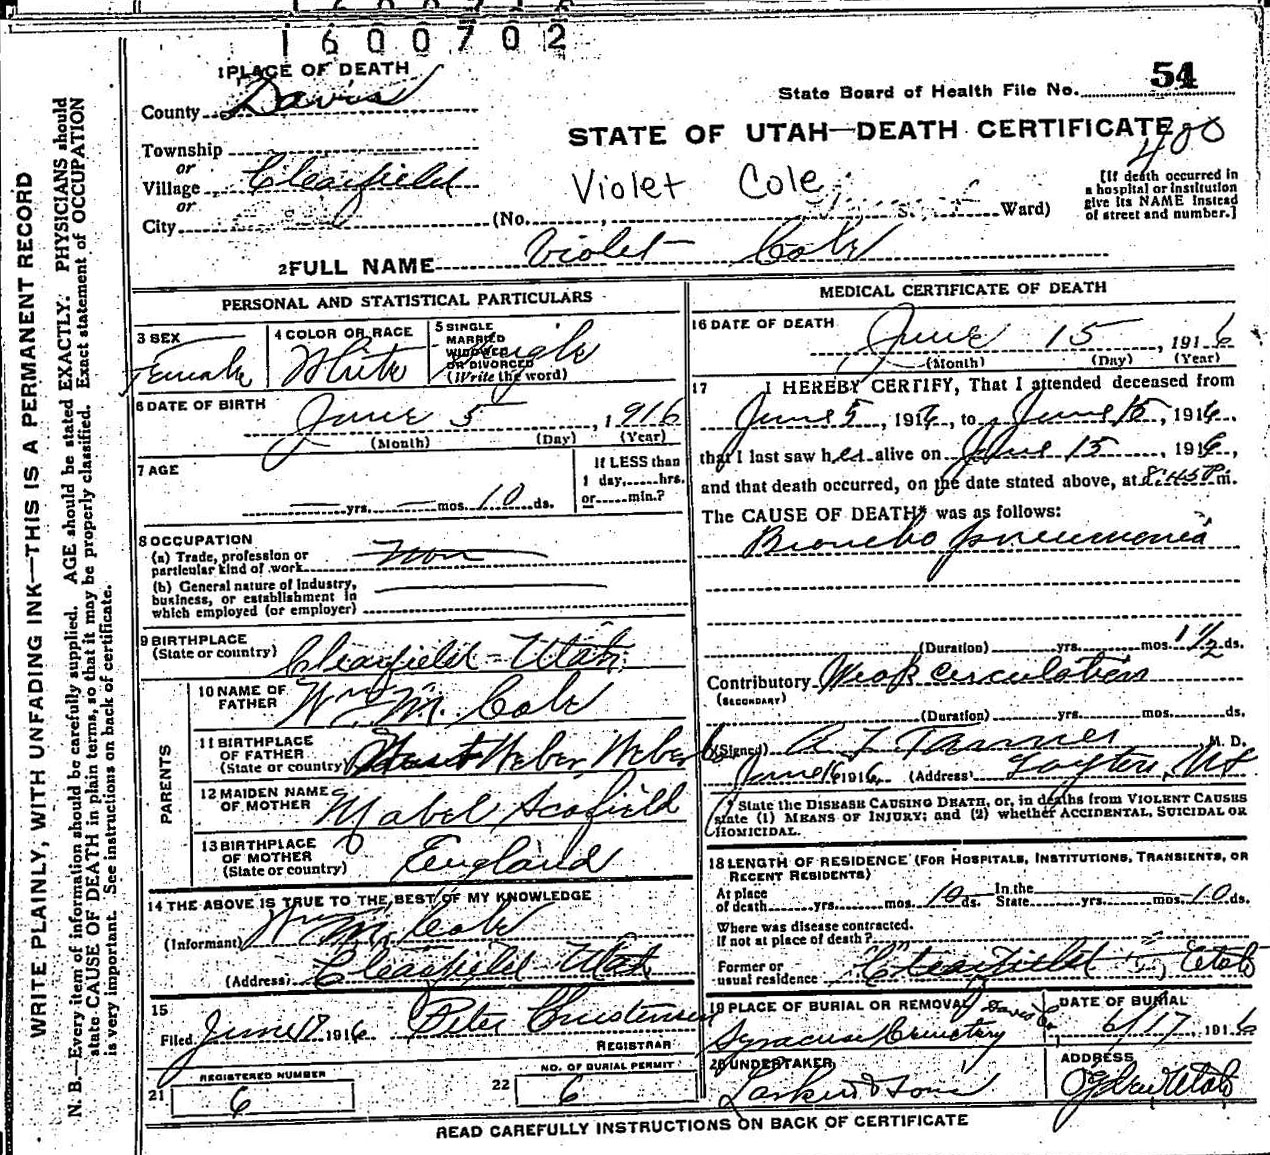 1600702
1 PLACE OF DEATH
County Davis
State Board of Health File No. 54
STATE OF UTAH—DEATH CERTIFICATE
400
Township
or
Village Clearfield
or
City
Violet Cole
(No. S. Ward)
[If death occurred in
a hospital or institution
give its NAME instead
of street and number.]
2 FULL NAME Violet Cole
PERSONAL AND STATISTICAL PARTICULARS
3 SEX Female
4 COLOR OR RACE White
5 SINGLE
MARRIED
WIDOWED
OR DIVORCED
(Write the word) Single
6 DATE OF BIRTH June 5, 1916
(Month) (Day) (Year)
7 AGE
— yrs. — mos. 10 ds.
If LESS than
1 day,......hrs.
or......min.?
8 OCCUPATION
(a) Trade, profession or
particular kind of work
(b) General nature of industry,
business, or establishment in
which employed (or employer)
9 BIRTHPLACE
(State or country) Clearfield - Utah
PARENTS
10 NAME OF
FATHER Wm M. Cole
11 BIRTHPLACE
OF FATHER
(State or country) West Weber, Weber
12 MAIDEN NAME
OF MOTHER Mabel Scofield
13 BIRTHPLACE
OF MOTHER
(State or country) England
14 THE ABOVE IS TRUE TO THE BEST OF MY KNOWLEDGE
(Informant) Wm M. Cole
(Address) Clearfield Utah
15
Filed June 17 1916 Peter Christensen
REGISTRAR
21 REGISTERED NUMBER
6
22 NO. OF BURIAL PERMIT
6
MEDICAL CERTIFICATE OF DEATH
16 DATE OF DEATH
June 15, 1916
(Month) (Day) (Year)
17 I HEREBY CERTIFY, That I attended deceased from
June 5, 1916, to June 15, 1916,
that I last saw her alive on June 15, 1916,
and that death occurred, on the date stated above, at 8:45 P m.
The CAUSE OF DEATH* was as follows:
Broncho pneumonia
(Duration) yrs. mos. 1 1/2 ds.
Contributory Weak circulation
(SECONDARY)
(Duration) yrs. mos. ds.
(Signed) A. Z. Tanner M. D.
June 16 1916 (Address) Layton, Ut
* State the DISEASE CAUSING DEATH, or, in deaths from VIOLENT CAUSES
state (1) MEANS OF INJURY; and (2) whether ACCIDENTAL, SUICIDAL OR
HOMICIDAL.
18 LENGTH OF RESIDENCE (FOR HOSPITALS, INSTITUTIONS, TRANSIENTS, OR
RECENT RESIDENTS)
At place
of death yrs. mos. 10 ds. In the
State yrs. mos. 10 ds.
Where was disease contracted.
if not at place of death?
Former or
usual residence Clearfield Utah
19 PLACE OF BURIAL OR REMOVAL
Syracuse Cemetery Davis Co.
DATE OF BURIAL
6/17, 1916
20 UNDERTAKER
Larkin & Sons
ADDRESS
Ogden Utah
READ CAREFULLY INSTRUCTIONS ON BACK OF CERTIFICATE
WRITE PLAINLY, WITH UNFADING INK—THIS IS A PERMANENT RECORD
N. B.—Every item of information should be carefully supplied. AGE should be stated EXACTLY. PHYSICIANS should
state CAUSE OF DEATH in plain terms, so that it may be properly classified. Exact statement of OCCUPATION
is very important. See instructions on back of certificate.